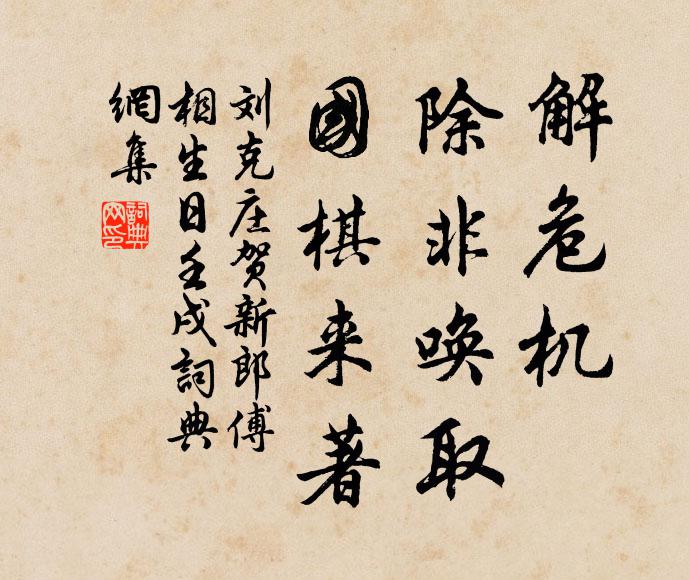 解危机
除非唤取
國棋来著
刘克庄贺新郎傅
相生日壬戌詞典
網集
詞典網印